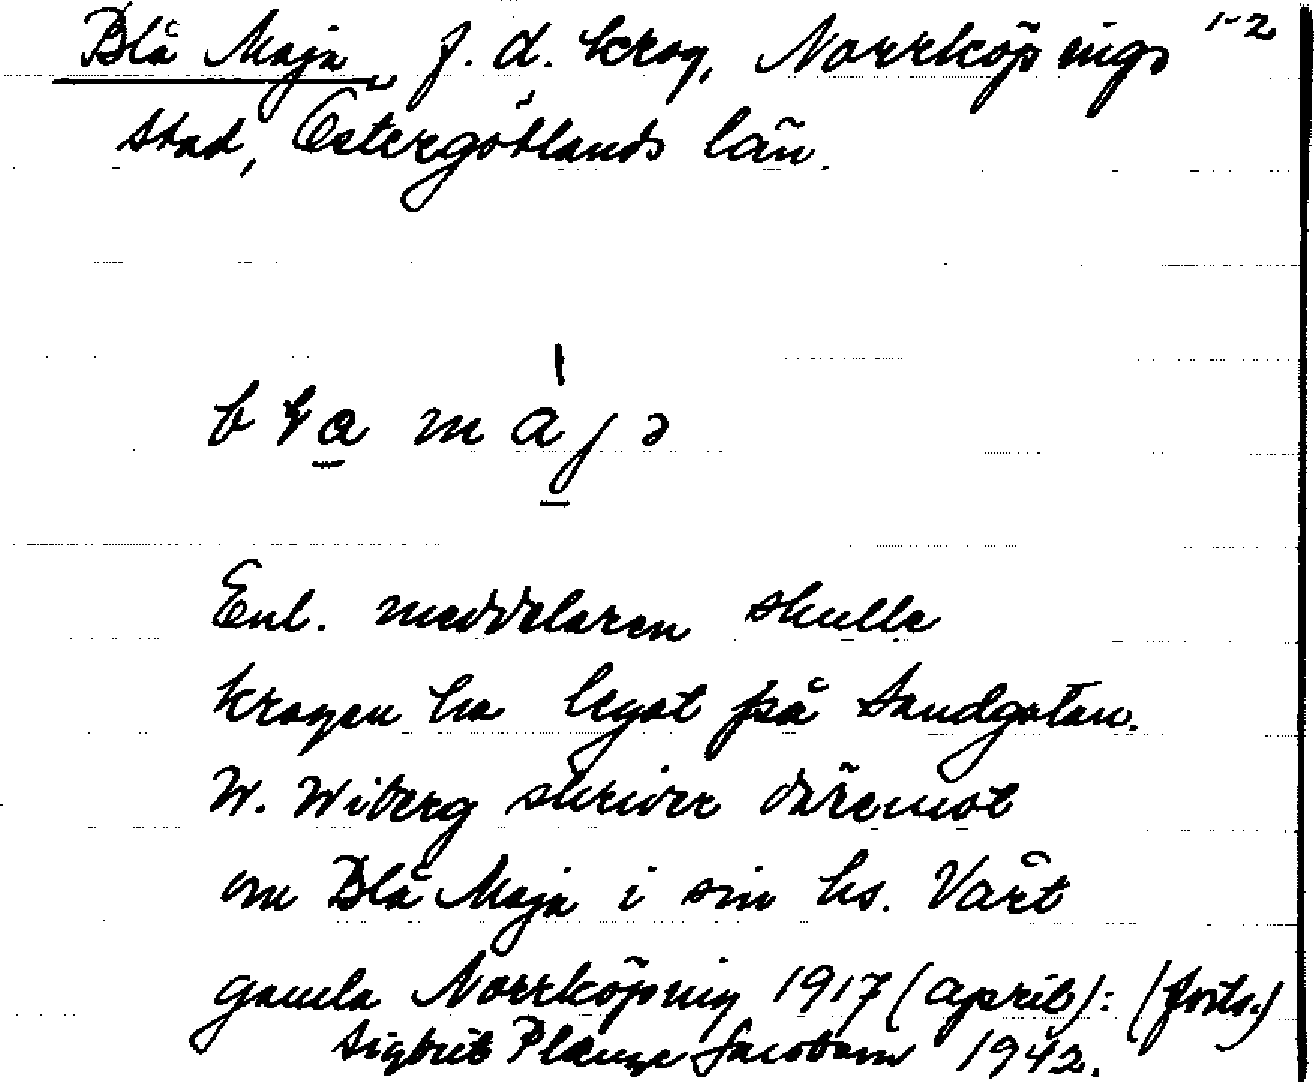 Blå Maja, f.d. krog, Norrköpings 1-2
stad, Östergötlands län.
Enl. meddelaren skulle
krogen ha legat på Sandgatan.
W. Wiberg skriver däremot
om Blå Maja i sin hs. Vårt
gamla Norrköping 1917 (april): (forts.)
Sigbrit Plænge Jacobson 1942.